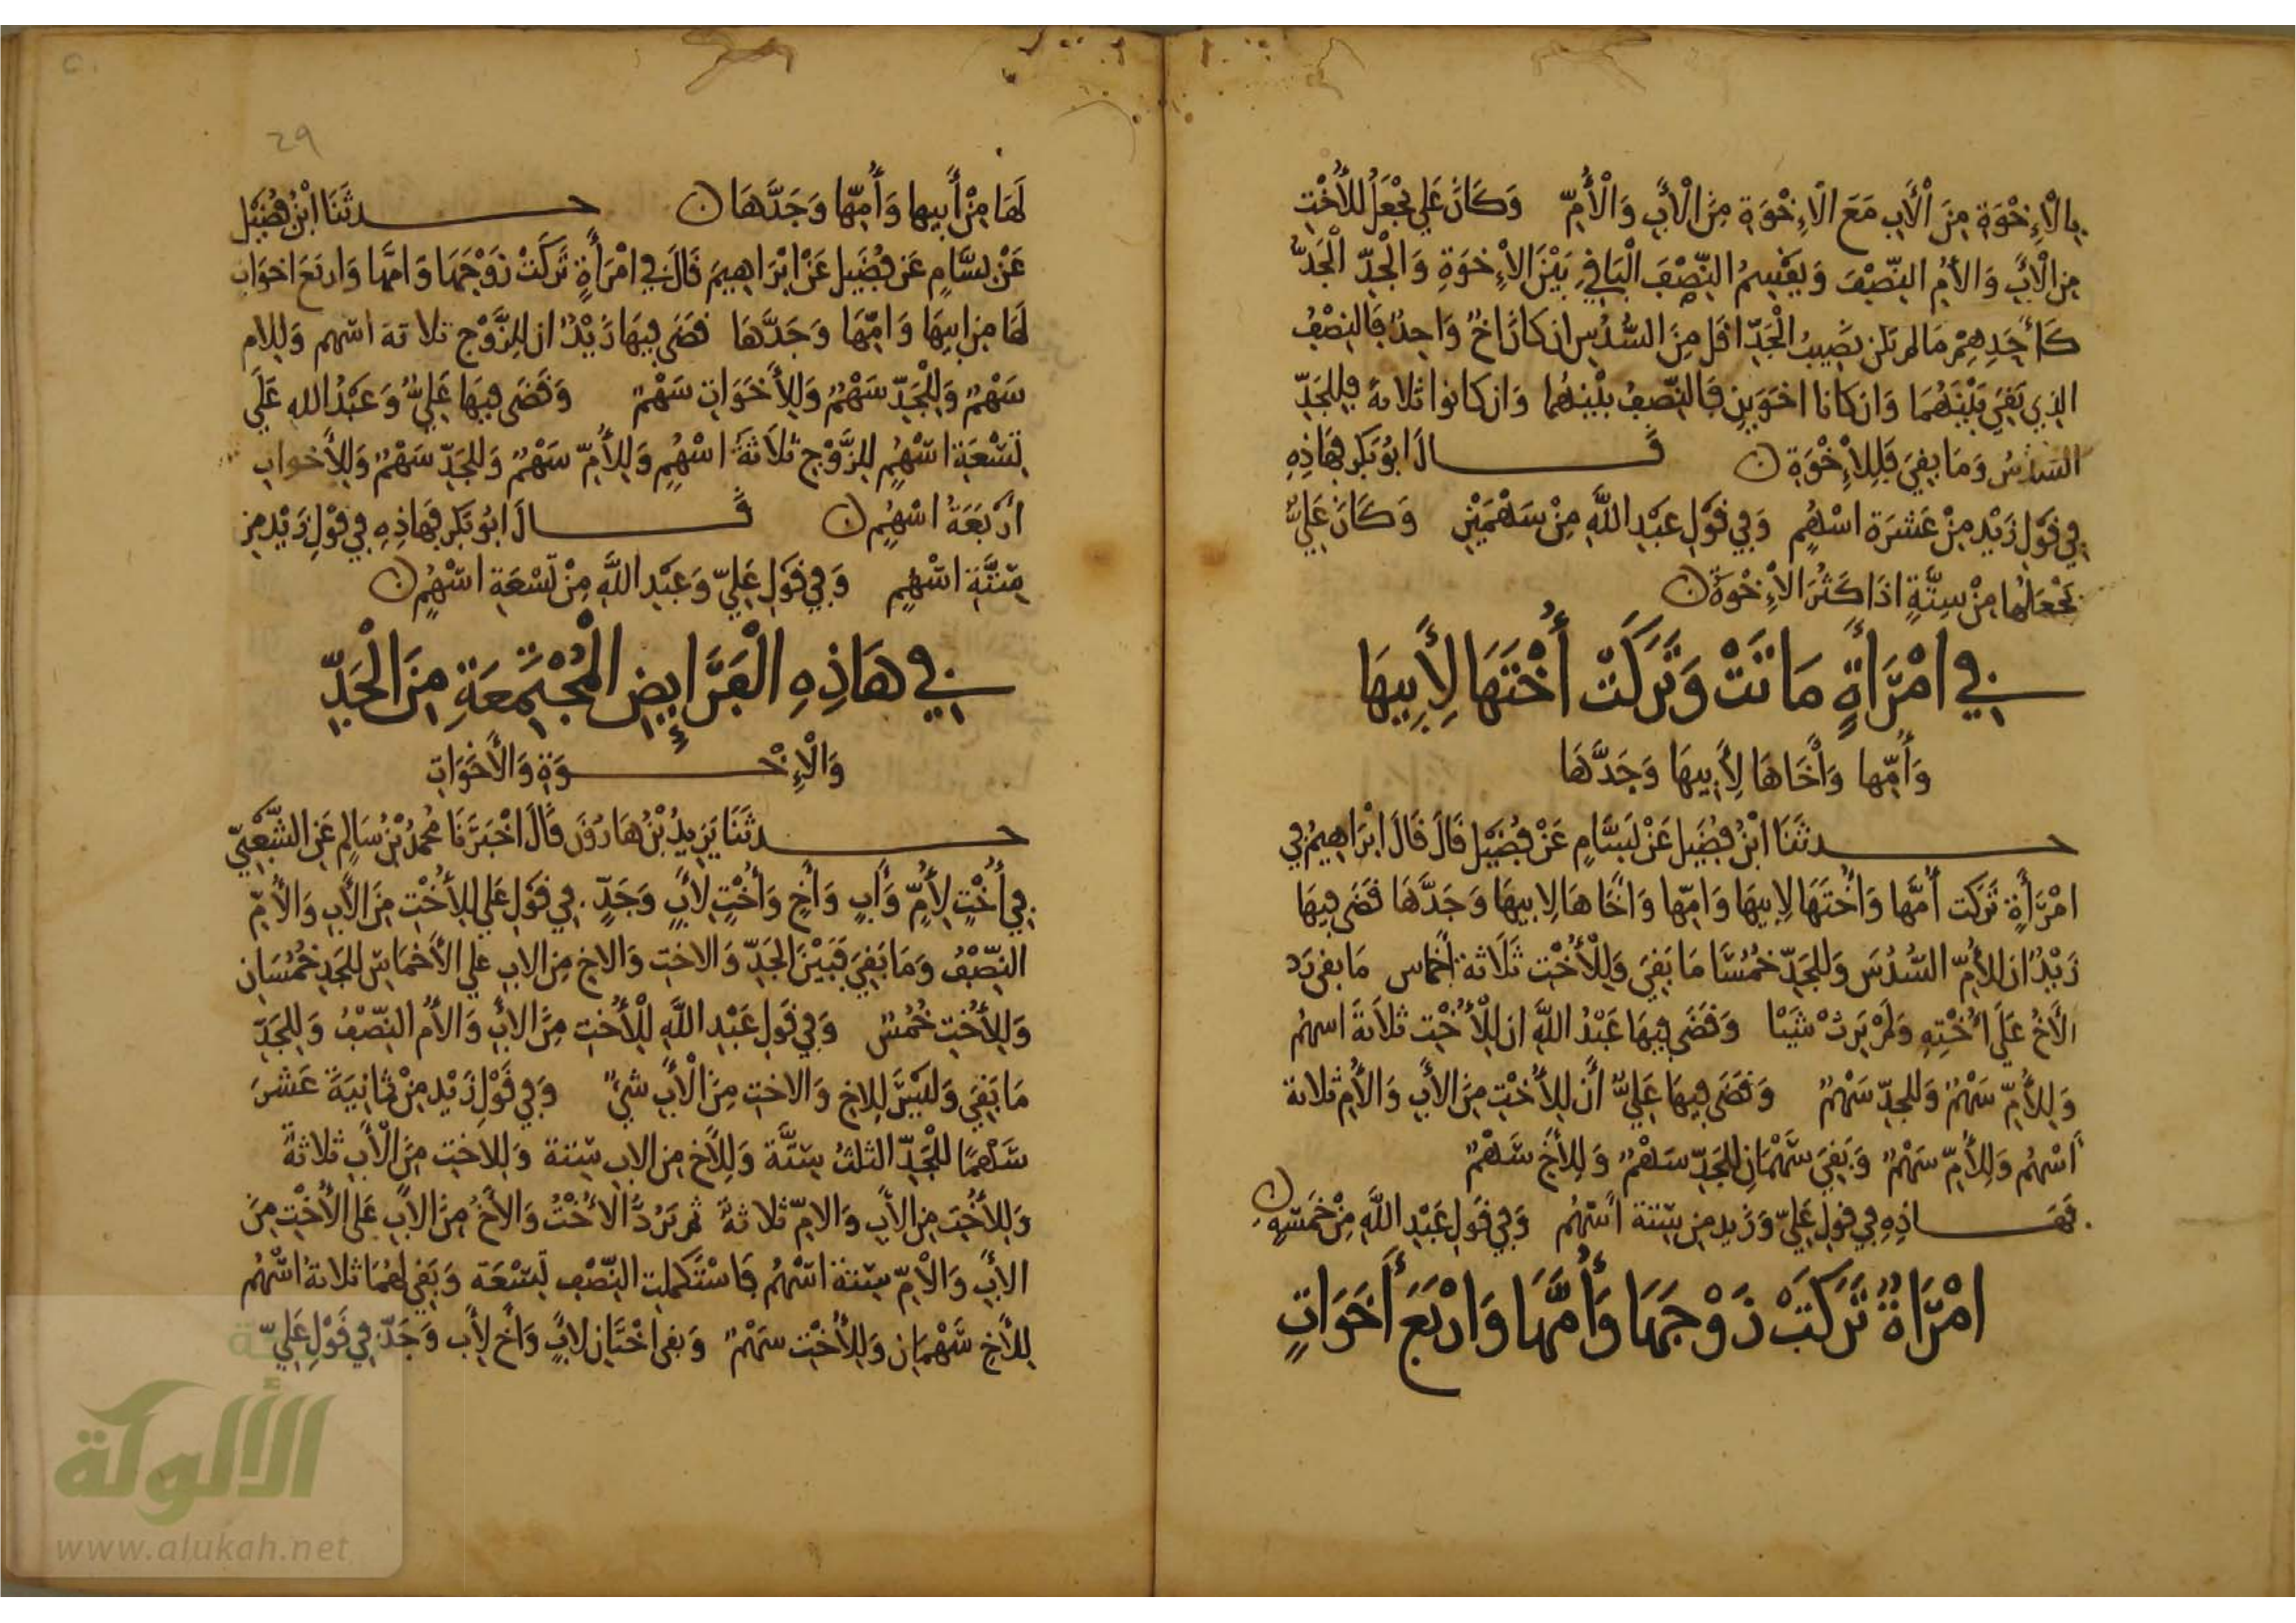 بِالْإِخْوَةِ مِنَ الْأَبِ مَعَ الْإِخْوَةِ مِنَ الْأَبِ وَالْأُمِّ وَكَانَ عَلِي يَجْعَلُ لِلْأُخْتِ
مِنَ الْأَبِ وَالْأُمِ النِّصْفَ وَيَقْسِمُ النِّصْفَ الْبَاقِي بَيْنَ الْإِخْوَةِ وَالْجَدِّ الْجَدُّ
كَأَحَدِهِمْ مَا لم يكن نصِيبُ الْجَدِّ اقل مِنَ السُّدُسِ ان كان أخٌ وَاحِدٌ فَالنِصْفُ
الذِي بَقِيَ بَيْنَهُمَا وَان كانا اخوَينِ فَالنِّصفُ بيْنهُما وَان كانوا ثلاثة فِللجَدِّ
السّدسُ وَمَا بقِيَ فَلِلْإِخْوَةِ قَالَ ابُو بَكر فهَاذِهِ
فِي قَوْلِ زَيْدٍ مِنْ عَشَرَة اسْهُمٍ وَفِي قَوْلِ عَبْدِ اللَّهِ مِنْ سَهْمَيْنِ وَكَانَ عَلِيٌّ
يَجْعَلُهَا مِنْ سِتَّةٍ اذَا كَثُرَ الْإِخْوَةُ
فِي امْرَأَةٍ مَاتَتْ وَتَرَكَتْ أُخْتَهَا لِأَبِيهَا
وَأُمِّها وَأَخَاهَا لِأَبِيهَا وَجَدَّهَا
حدثَنَا ابْنُ فُضَيْل عَنْ بَسَّامٍ عَنْ فُضَيْل قَالَ قَالَ ابْرَاهِيمُ فِي
امْرَأَةٍ تَرَكت أُمَّها وَأُخْتَهَا لِابِيهَا وَامِّها وَاخَاهَا لِابيهَا وَجَدَّهَا قضَى فِيهَا
زَيْدٌ ان لِلأُمِّ السُّدُسَ وَلِلجَدِّ خمُسَا مَا بَقِيَ وَلِلْأُخْتِ ثَلَاثة أخماس مَا بقى رَد
الأَخُ عَلَى أُخْتِهِ وَلَمْ يَرِثْ شيْئا وَقَضَى فِيهَا عَبْدُ اللَّهِ ان لِلْأُخْتِ ثلاثَةَ اسهُم
وَلِلأُمِّ سَهْمٌ وَللجدِّ سَهْمٌ وَقضَى فِيهَا عَلِيٌّ أَنَّ لِلأُخْتِ مِنَ الأَبِ وَالأُمِ ثلاثة
أَسْهُم وَلِلأُمِّ سَهْمٌ وَبَقِيَ سَهْمَانِ لِلجَدِّ سَهْمٌ وَلِلأَخِ سَهْمٌ
فهَاذِهِ فِي قولِ عَلِيّ وَزَيد مِن سِتة أَسْهُم وَفِي قوْلِ عَبْدِ اللَّهِ مِنْ خَمسَةٍ
امْرَأَةٌ تَرَكَتْ زَوْجَهَا وَأُمَّهَا وَارْبَعَ أَخَوَاتٍ
29
لَهَا مِنْ أَبِيها وَأُمِّها وَجَدَّهَا حدثَنَا ابْنُ فُضَيْل
عَنْ بسَّامٍ عَن فُضَيل عَنْ ابْرَاهِيمَ قَالَ فِي امْرَأَةٍ تَرَكَتْ زَوْجَهَا وَامَّها وَاربَعَ اخوَات
لَهَا مِن ابِيهَا وَامِّهَا وَجَدَّهَا قضَى فِيهَا زَيْدٌ ان لِلزَّوْج ثلاثة اسْهم وَلِلام
سَهْمٌ وَلِلْجَدِّ سَهْمٌ وَلِلأَخَوَاتِ سَهْمٌ وَقَضَى فِيهَا عَلِيٌّ وَعَبْدُ اللهِ عَلَي
تسْعَةِ اسْهُمٍ لِلزَّوْجِ ثلاَثَةُ اسْهُمٍ وَلِلأُمِّ سَهْمٌ وَللجَدِّ سَهْمٌ وَلِلأَخواتِ
ارْبَعَةُ اسْهُمٍ قَالَ ابُو بَكر فهَاذِهِ فِي قوْلِ زَيْد مِن
سِتَّةِ اسْهُمٍ وَفِي قَوْلِ عَلِيّ وَعَبْدِ اللَّهِ مِنْ تسْعَةِ اسْهُمٍ
فِي هَاذِهِ الْفَرَائِضِ الْمُجْتَمِعَةِ مِنَ الْجَدِّ
وَالْإِخْوَةِ وَالْأَخَوَاتِ
حدثَنَا يَزِيدُ بْنُ هَارُونَ قَالَ اخْبَرَنَا مُحمَّدُ بْنُ سَالِمٍ عَنِ الشَّعْبِيِّ
فِي أُخْتٍ لِأُمٍّ وَأَبٍ وَأَخٍ وَأُخْتٍ لِأَبٍ وَجَدٍّ فِي قَوْلِ عَلي لِلأُخْتِ مِنَ الأَبِ وَالأُمِّ
النِّصْفُ وَمَا بَقِيَ فَبَيْنَ الجَدِّ وَالاختِ وَالاخِ مِن الابِ عَلي الأَخمَاسِ لِلجَدِ خمُسَانِ
وَلِلأُخْتِ خُمُسٌ وَفِي قَولِ عَبْدِ اللَّهِ لِلْأُخْتِ مِنَ الأَبِ وَالأُمِ النِّصْفُ وَلِلجَدِّ
مَا بَقِيَ وَلَيْسَ لِلاخِ وَالاختِ مِنَ الْأَبِ شيءٌ وَفِي قَوْلِ زَيْد مِنْ ثمانِيَةَ عَشرَ
سَهْمًا لِلْجَدِّ الثلثُ سِتَّة وَلِلأَخ مِن الابِ سِتة وَلِلاختِ مِنَ الْأَبِ ثلاثَةٌ
وَلِلأُخْتِ مِن الأَبِ وَالامِّ ثلاثةٌ ثم تَرُدُّ الأُخْتُ وَالأَخُ مِنَ الأَبِ عَلى الأُخْتِ مِنَ
الأَبِ وَالْأمِّ سِتة اسْهُم فَاسْتَكملت النِّصْف تِسْعَة وَبَقي لهُمَا ثلاثة اسْهُم
لِلأَخِ سَهْمَانِ وَلِلأُخْتِ سَهْمٌ وَفي اخْتَانِ لِأَبٍ وَأخ لِأَب وَجَدّ فِي قَوْلِ عَلِيّ
الألوكة
www.alukah.net